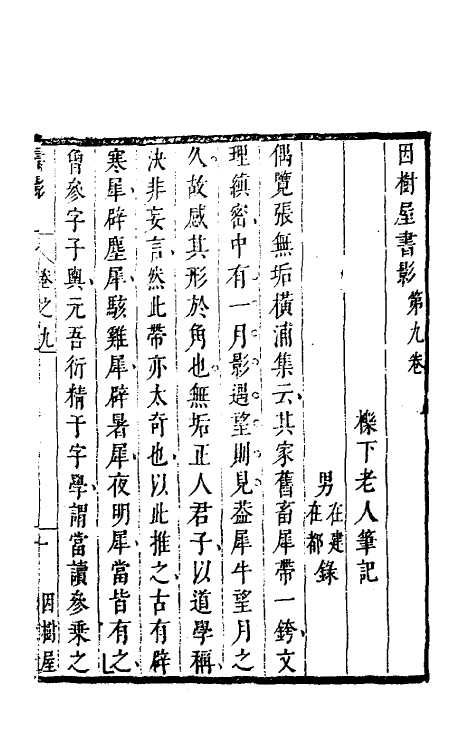 因樹屋書影第九卷
櫟下老人筆記
男在建在都錄
偶覽張無垢橫浦集云其家舊畜犀帶一銙文
理縝密中有一月影遇望則見葢犀牛望月之
久故感其形於角也無垢正人君子以道學稱
決非妄言然此帶亦太奇也以此推之古有辟
寒犀辟塵犀駭雞犀辟暑犀夜明犀當皆有之
曾參字子輿元吾衍精于字學謂當讀參乘之
書影 卷之九 一 因樹屋